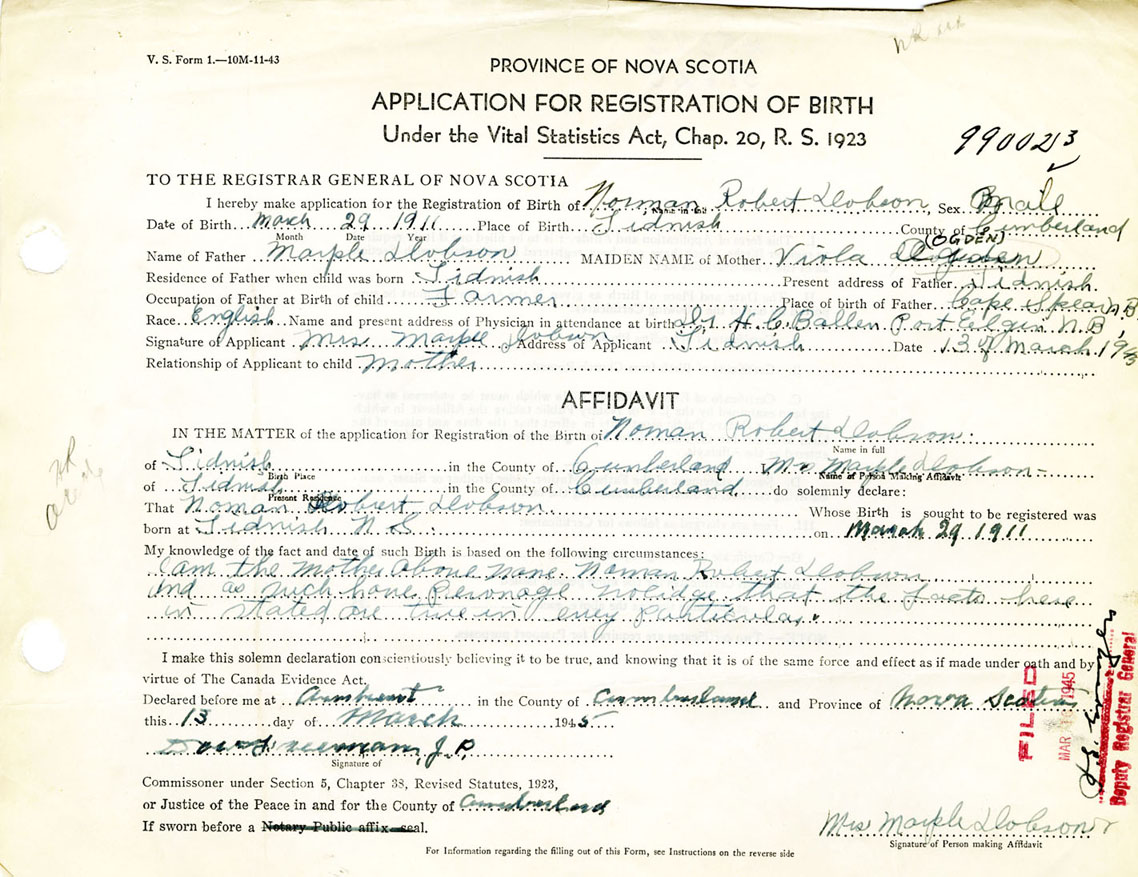 V. S. Form 1.—10M-11-43
PROVINCE OF NOVA SCOTIA
APPLICATION FOR REGISTRATION OF BIRTH
Under the Vital Statistics Act, Chap. 20, R. S. 1923
990023
TO THE REGISTRAR GENERAL OF NOVA SCOTIA
I hereby make application for the Registration of Birth of Norman Robert Dobson, Sex male
Name in full
Date of Birth March 29 1911 Place of Birth Tidnish County of Cumberland
Month Date Year
(OGDEN)
Name of Father Marple Dobson MAIDEN NAME of Mother Viola Ogden
Residence of Father when child was born Tidnish Present address of Father Tidnish
Occupation of Father at Birth of child Farmer Place of birth of Father Cape Spear N B
Race English Name and present address of Physician in attendance at birth Dr H C Ballen Port Elgin N B
Signature of Applicant Mrs Marple Dobson Address of Applicant Tidnish Date 13 of March 19
Relationship of Applicant to child Mother
AFFIDAVIT
IN THE MATTER of the application for Registration of the Birth of Noman Robert Dobson
Name in full
of Tidnish in the County of Cumberland Mrs Marple Dobson
Birth Place Name of Person Making Affidavit
of Tidnish in the County of Cumberland do solemnly declare:
Present Residence
That Noman Robert Dobson Whose Birth is sought to be registered was
born at Tidnish N. S. on March 29 1911
My knowledge of the fact and date of such Birth is based on the following circumstances:
I am the Mother Above name Noman Robert Dobson
and as such have Personage nolidge that the facts here
in stated are true in eny particular.
I make this solemn declaration conscientiously believing it to be true, and knowing that it is of the same force and effect as if made under oath and by
virtue of The Canada Evidence Act.
Declared before me at Amherst in the County of Cumberland and Province of Nova Scotia
this 13 day of March 1945
J. P.
Signature of
Commissoner under Section 5, Chapter 38, Revised Statutes, 1923,
or Justice of the Peace in and for the County of Cumberland
If sworn before a Notary Public affix seal.
Mrs Marple Dobson
Signature of Person making Affidavit
For Information regarding the filling out of this Form, see Instructions on the reverse side
FILED
MAR 1945
Deputy Registrar General